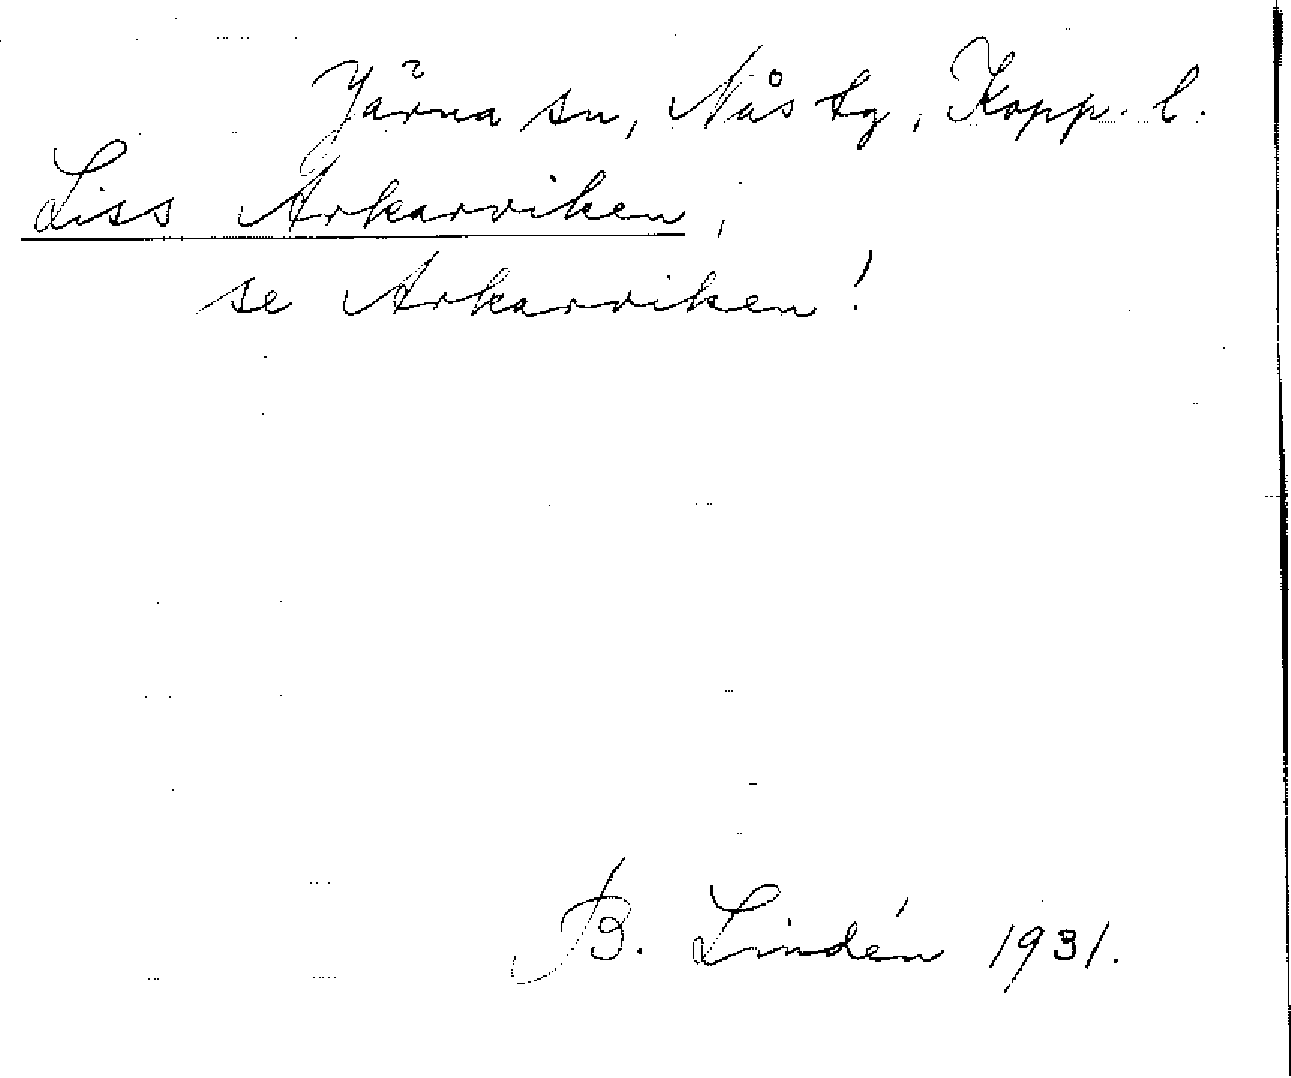 Järna sn, Nås tg, Kopp. l.
Liss Arkarviken,
se Arkarviken!
B. Lindén 1931.